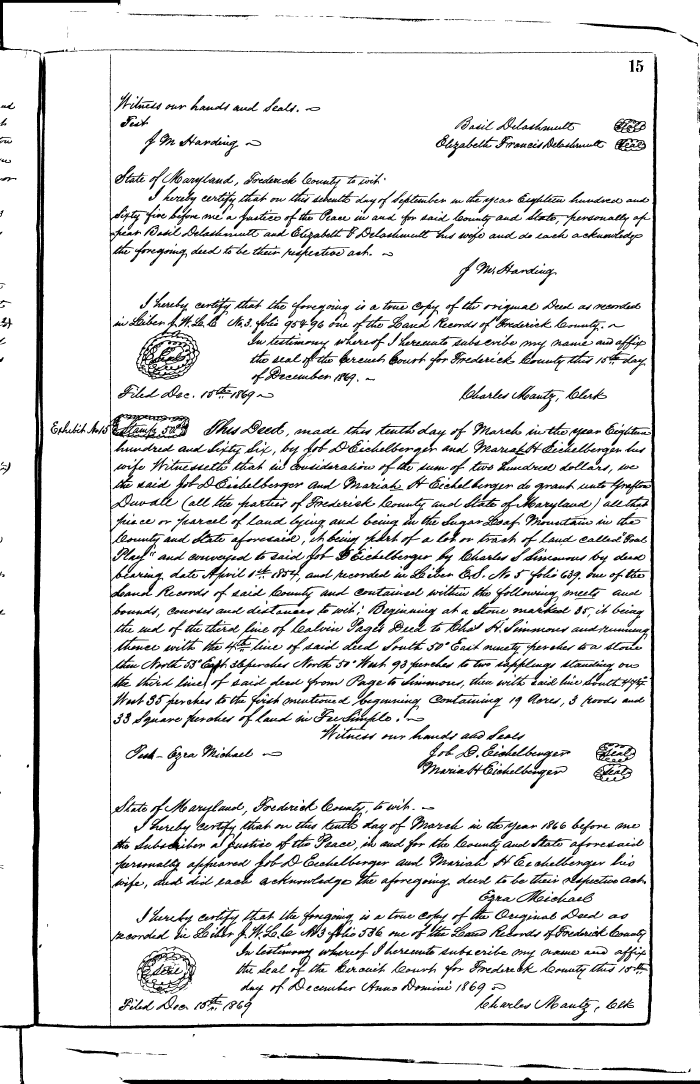 15
Witness our hands and Seals. ~
Test Basil Delashmutt (Seal)
J M Harding ~ Elizabeth Francis Delashmutt (Seal)
State of Maryland, Frederick County to wit:
I hereby certify that on this seventh day of September in the year Eighteen hundred and
Sixty five before me a Justice of the Peace in and for said County and State, personally ap
pear Basil Delashmutt and Elizabeth F Delashmutt his wife and do each acknowledge
the foregoing deed to be their respective act. ~
J M Harding
I hereby certify that the foregoing is a true copy of the original Deed as recorded
in Liber J.W.L.C No.3. folio 95&96 one of the Land Records of Frederick County. ~
In testimony whereof I hereunto subscribe my name and affix
Seal
the seal of the Circuit Court for Frederick County this 15th day
of December 1869. ~
Filed Dec. 15th 1869 ~ Charles Mantz, Clerk
Exhibit No 15 Stamp 50cts This Deed, made this tenth day of March in the year Eighteen
hundred and Sixty Six, by Job D Eichelberger and Mariah H Eichelberger his
wife Witnesseth that in consideration of the sum of two hundred dollars, we
the said Job D Eichelberger and Mariah H Eichelberger do grant unto Grafton
Duvall (all the parties of Frederick County and State of Maryland) all that
piece or parcel of land lying and being in the Sugar Loaf Mountain in the
County and State aforesaid, it being part of a lot or tract of land called
Play" and conveyed to said Job D Eichelberger by Charles S Simmons by deed
bearing date April 1st 1854, and recorded in Liber E.S. No 5 folio 639, one of the
Land Records of said County and contained within the following meets and
bounds, courses and distances to wit; Beginning at a Stone marked 35, it being
the end of the third line of Calvin Page's Deed to Chas H. Simmons and running
thence with the 4th line of said deed South 50° East ninety perches to a stone
then North 55° East 36 perches North 50° West 93 perches to two sapplings standing on
the third line of said deed from Page to Simmons, then with said line South
West 35 perches to the first mentioned beginning Containing 19 Acres, 3 roods and
33 Square perches of land in Fee Simple. ~
Witness our hands and Seals
Test - Ezra Michael ~ Job D. Eichelberger (Seal)
Maria H Eichelberger (Seal)
State of Maryland, Frederick County, to wit. ~
I hereby certify that on this tenth day of March in the year 1866 before me
the Subscriber a Justice of the Peace, in and for the County and State aforesaid
personally appeared Job D Eichelberger and Mariah H Eichelberger his
wife, and did each acknowledge the aforegoing deed to be their respective act.
Ezra Michael
I hereby certify that the foregoing is a true copy of the Original Deed as
recorded in Liber J.W.L.C No 3 folio 536 one of the Land Records of Frederick County
In testimony whereof I hereunto subscribe my name and affix
Seal
the Seal of the Circuit Court for Frederick County this 15th
day of December Anno Domini 1869 ~
Filed Dec. 15th 1869 Charles Mantz, Clk